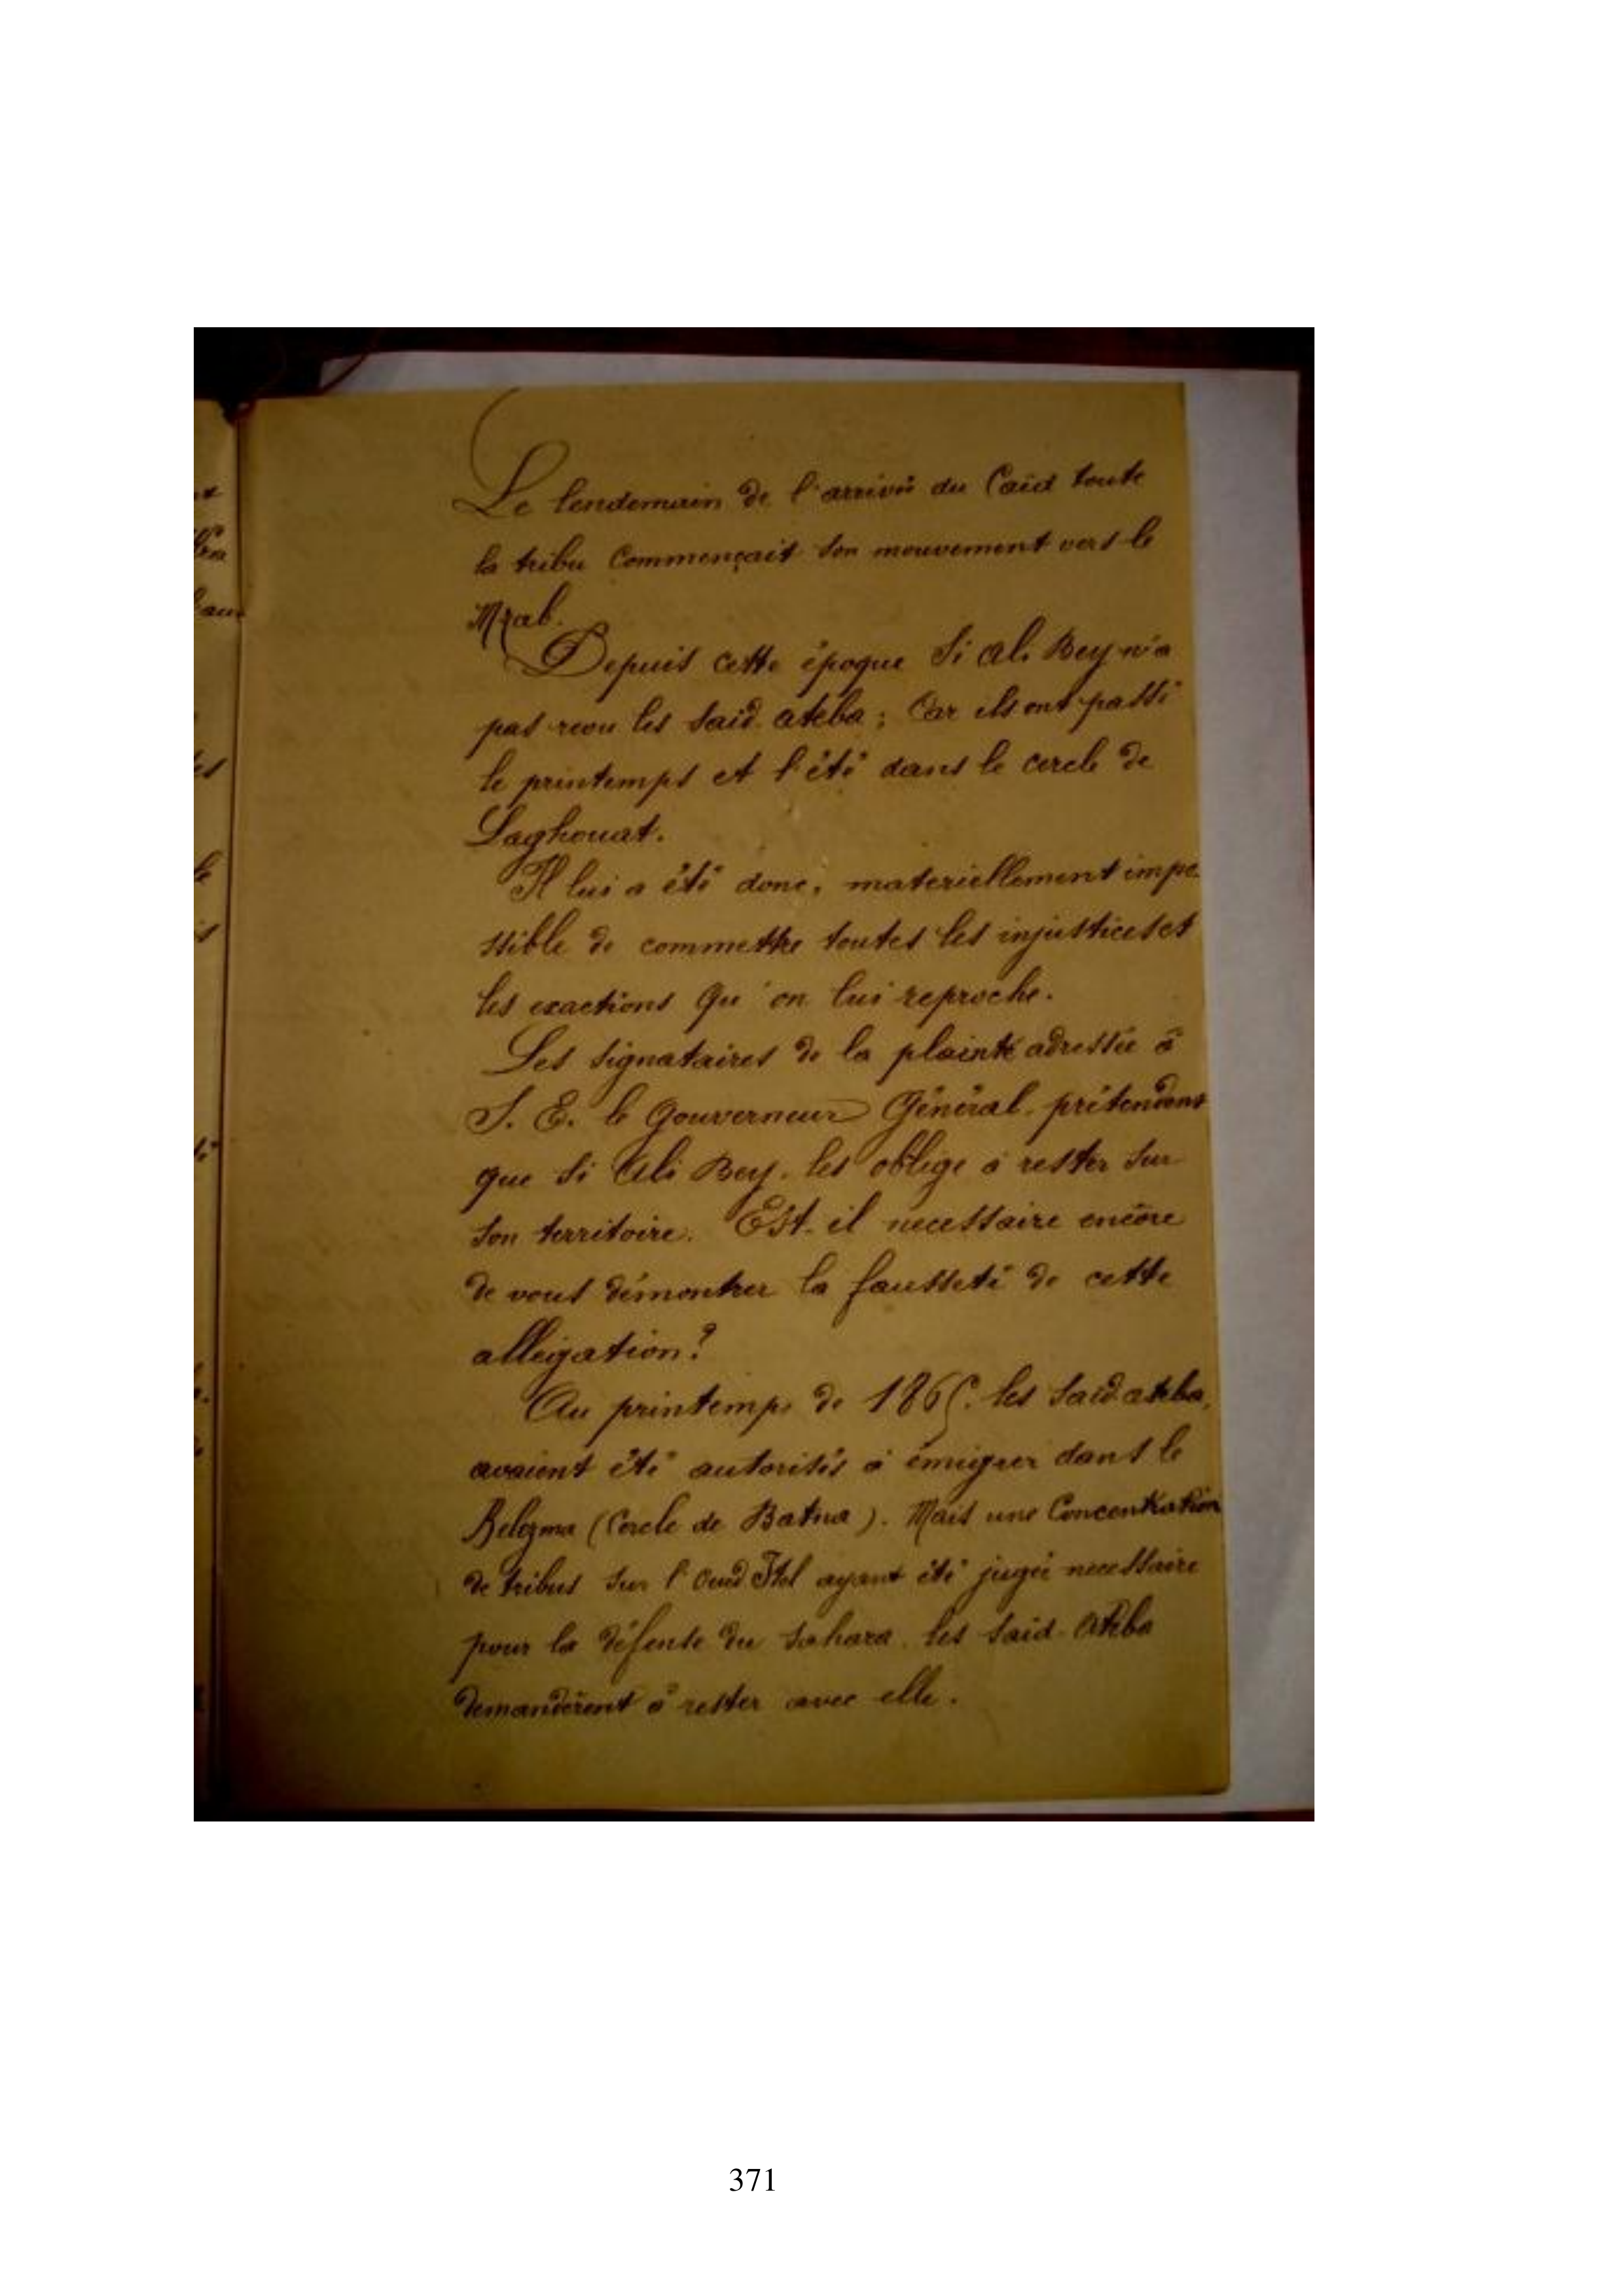 Le lendemain de l'arrivée du Caïd toute
la tribu Commençait son mouvement vers le
Mzab.
Depuis cette époque Si Ali Bey n'a
pas revu les Saïd Ateba ; Car ils ont passé
le printemps et l'été dans le cercle de
Laghouat.
Il lui a été donc, materiellement impo
ssible de commettre toutes les injustices et
les exactions qu'on lui reproche.
Les signataires de la plainte adressée à
S. E. le Gouverneur Général, prétendent
que Si Ali Bey, les oblige à rester sur
son territoire. Est-il necessaire encore
de vous démontrer la fausseté de cette
allégation ?
Au printemps de 1865. les Saïd Ateba,
avaient été autorisés à émigrer dans le
Belezma (Cercle de Batna). Mais une Concentration
de tribus sur l'Oued Itel ayant été jugée necessaire
pour la défense du Sahara, les Saïd-Ateba
demandèrent à rester avec elle.
371